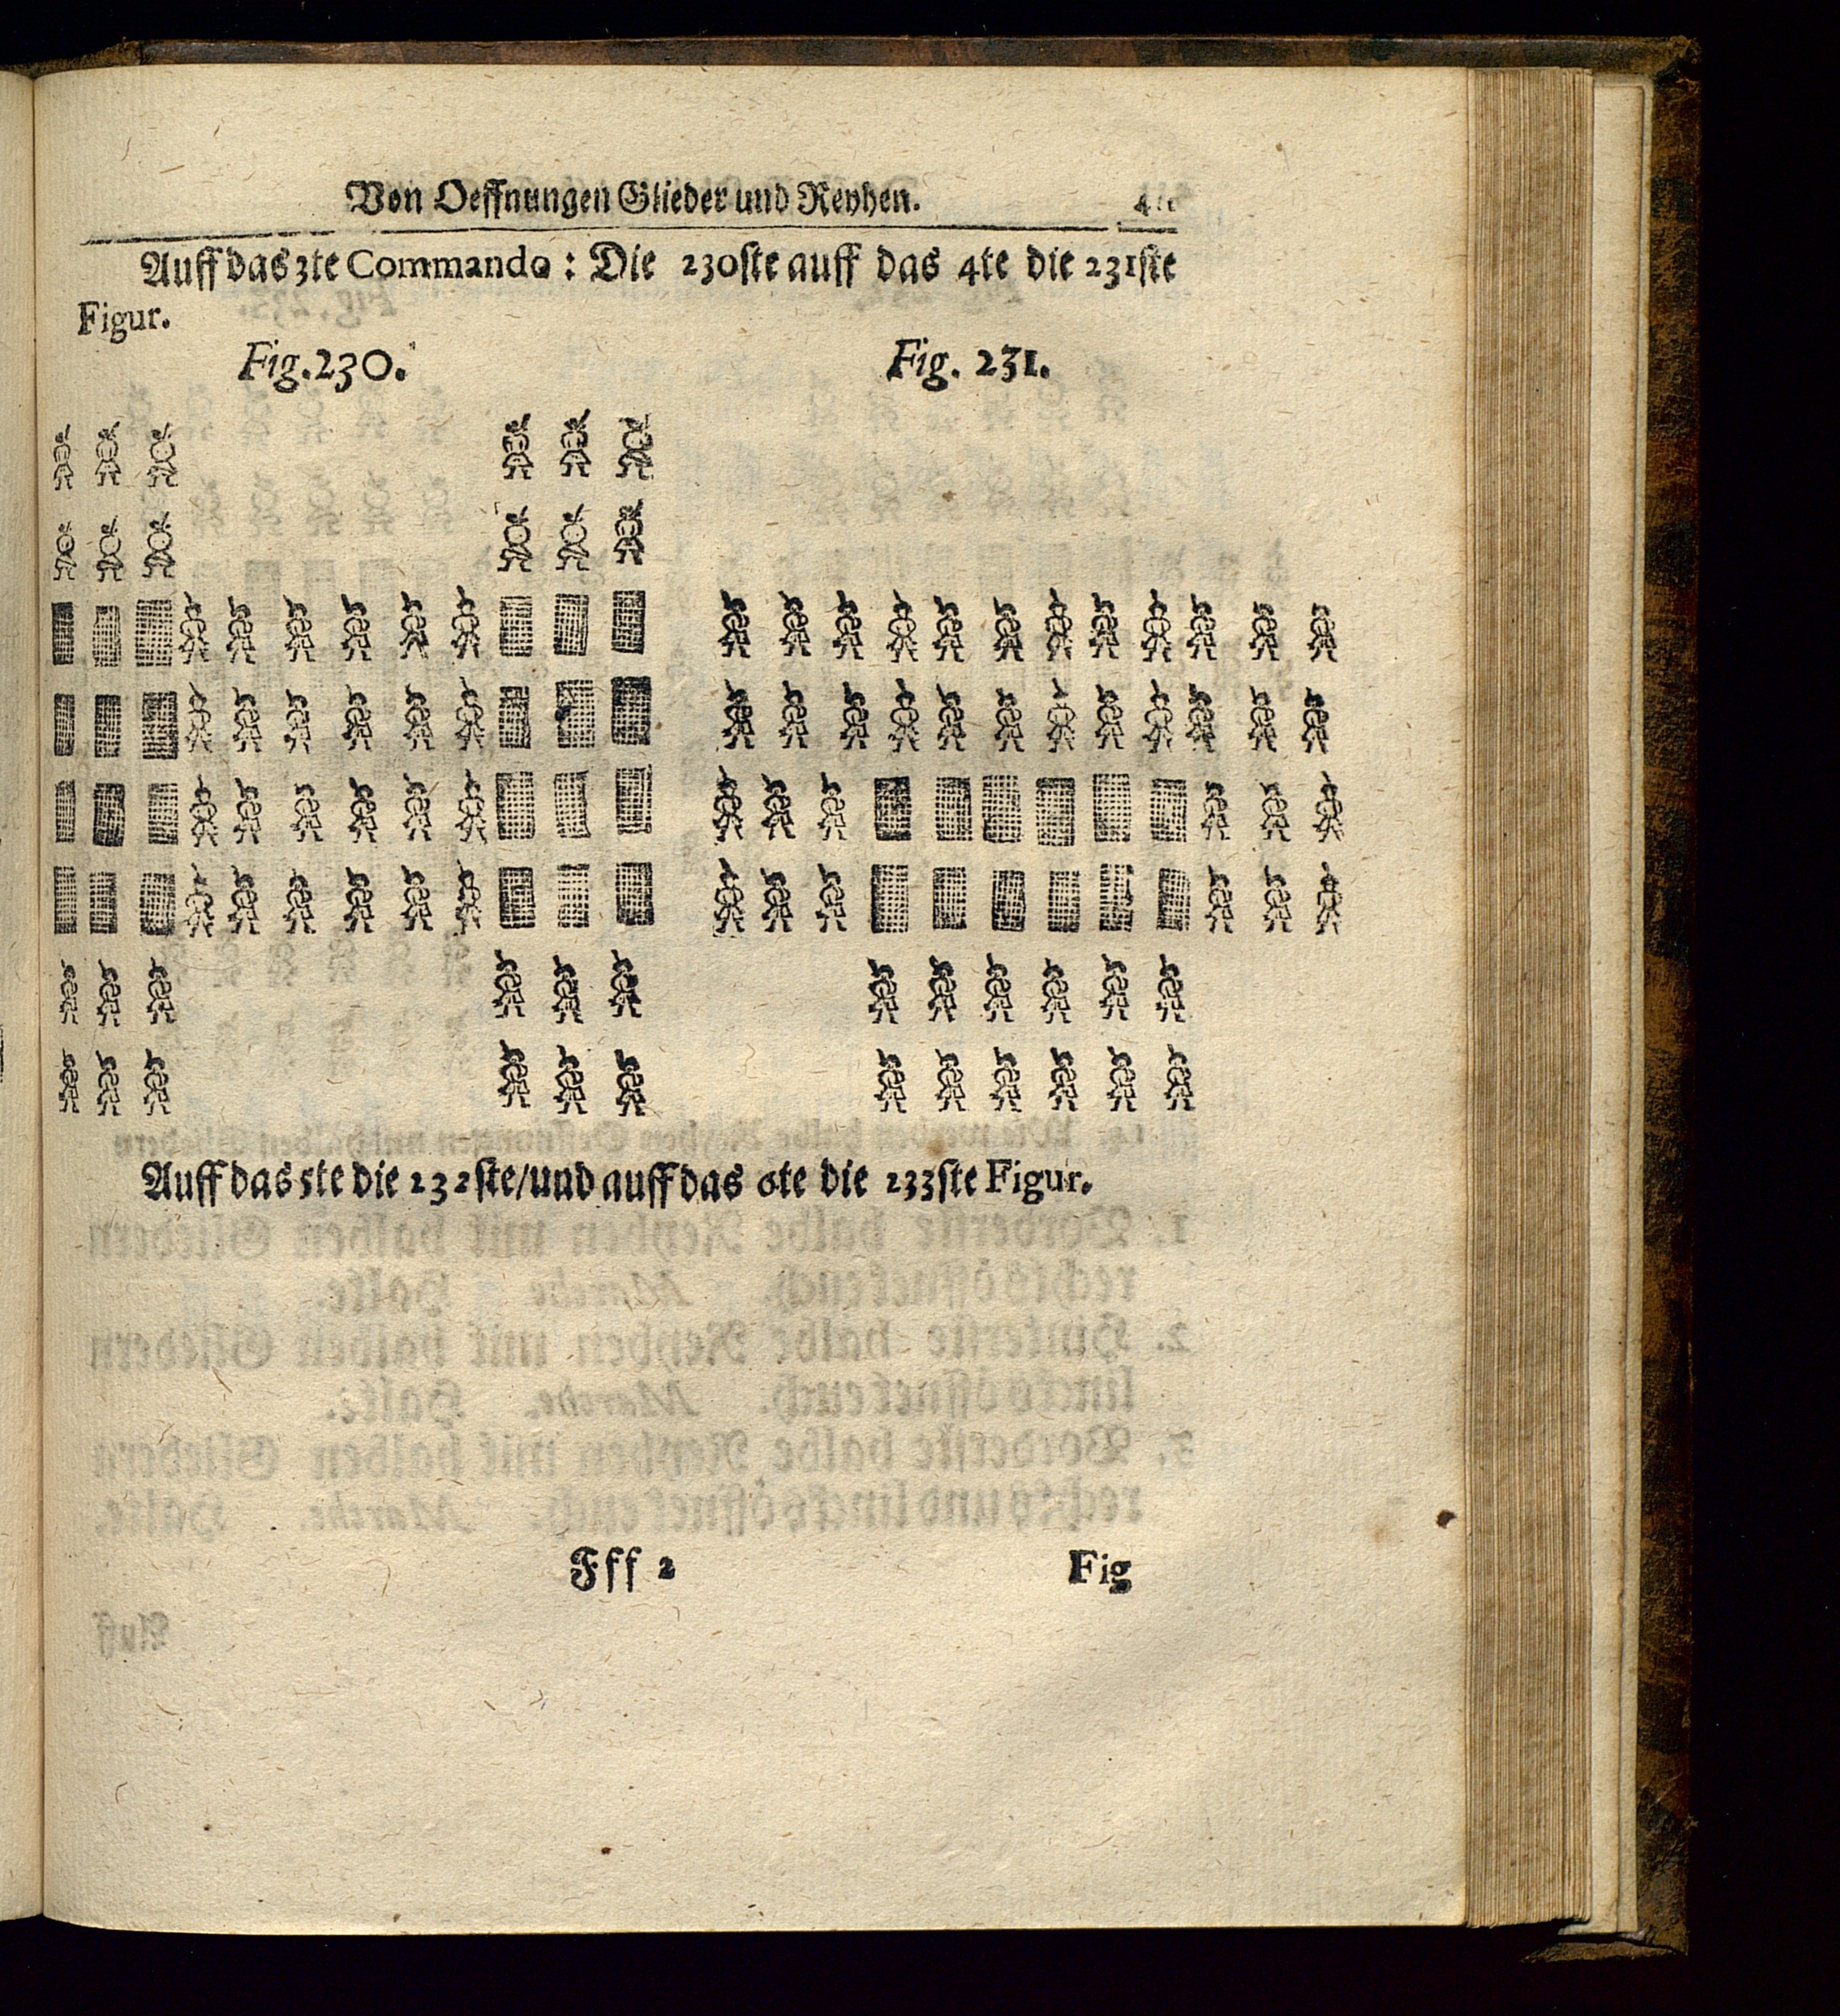 Von Oeffnungen Glieder und Reyhen.
Auff das 3te Commando: Die 230ste auff das 4te die 231ste
Figur.
Fig. 230.
Fig. 231.
Auff das 5te die 232ste/und auff das 6te die 233ste Figur.
Fff 2
Fig